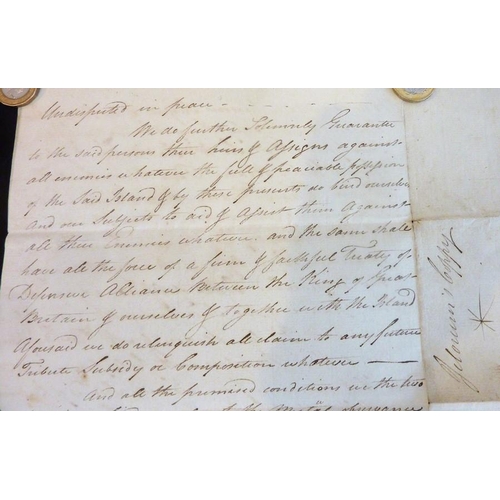 Undisputed in peace - - - -
We do further Solemnly Guarantee
to the said persons their heirs & Assigns against
all enemies whatever the full & peaceable possession
of the Said Island & by these presents do bind ourselves
And our Subjects to aid & Assist them Against
all their Enemies whatever. and the same shall
have all the force of a firm & faithful Treaty of
Defensive Alliance between the King of Great
Britain & ourselves & together with the Island
Aforesaid we do relinquish all claim to any future
Tribute Subsidy or Composition whatever —
And all the promised conditions in the two
Copy